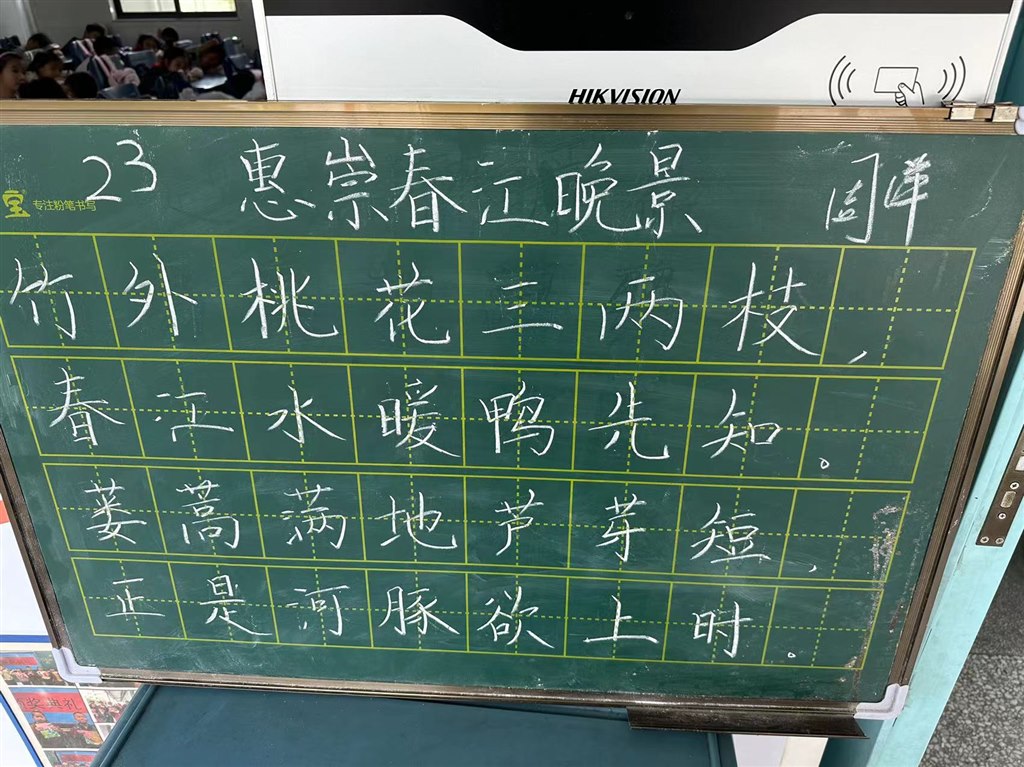 HIKVISION
23 惠崇春江晚景
专注粉笔书写
竹外桃花三两枝，
春江水暖鸭先知。
蒌蒿满地芦芽短，
正是河豚欲上时。
奖典礼